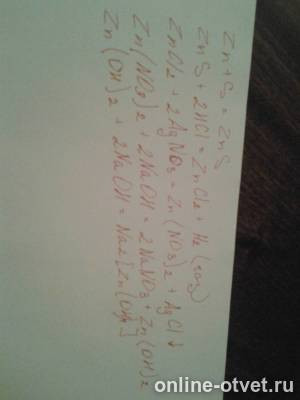 Zn + S = ZnS
ZnS + 2HCl = ZnCl2 + H2 (газ)
ZnCl2 + 2AgNO3 = Zn(NO3)2 + AgCl↓
Zn(NO3)2 + 2NaOH = 2NaNO3 + Zn(OH)2
Zn(OH)2 + 2NaOH = Na2[Zn(OH)4]
online-otvet.ru